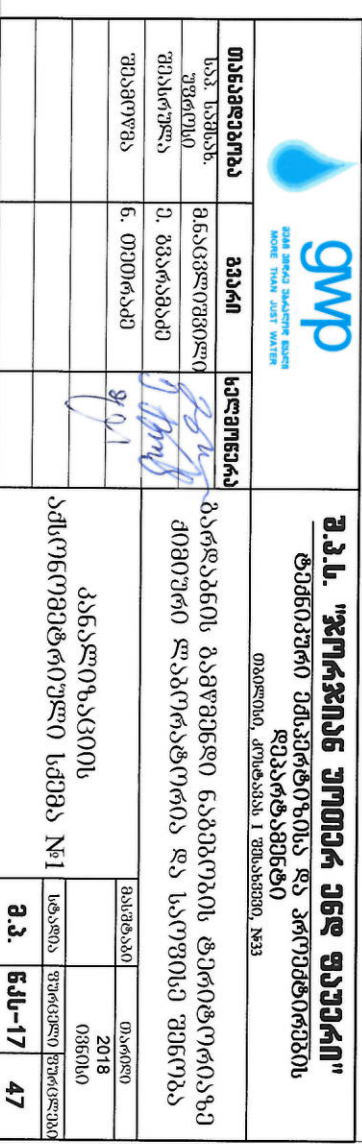 gwp
მეტი ვიდრე უბრალოდ წყალი
MORE THAN JUST WATER
შ.პ.ს. "ჯორჯიან უოთერ ენდ ფაუერი"
ტექნიკური ექსპერტიზისა და პროექტირების
დეპარტამენტი
თბილისი, კოსტავას I შესახვევი, №33
თანამდებობა გვარი ხელმოწერა
საპ. სამსახ.
უფროსი
მ.ნაცვლიშვილი
შეასრულა ე. გვარამაძე
შეამოწმა ნ. თეთრაძე
გარდაბნის გამწმენდი ნაგებობის ტერიტორიაზე
ქიმიური ლაბორატორია და საოფისე შენობა
კანალიზაციის
აქსონომეტრიული სქემა №1
მასშტაბი თარიღი
2018
ივნისი
სტადია ფურცელი ფურცლები
მ.პ. წკს-17 47